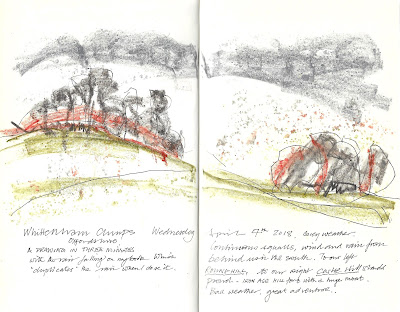 Whittenham Clumps Wednesday
Oxfordshire
A DRAWING IN THREE MINUTES
with the rain 'falling' on my book which
'duplicates' the rain when I do it.
April 4th 2018. weather.
Continuous squalls, wind and rain from
behind from the south. To our left
ROUND HILL, to our right Castle Hill stands
proud - iron age hill fort with a huge moat.
Bad weather, great adventure!